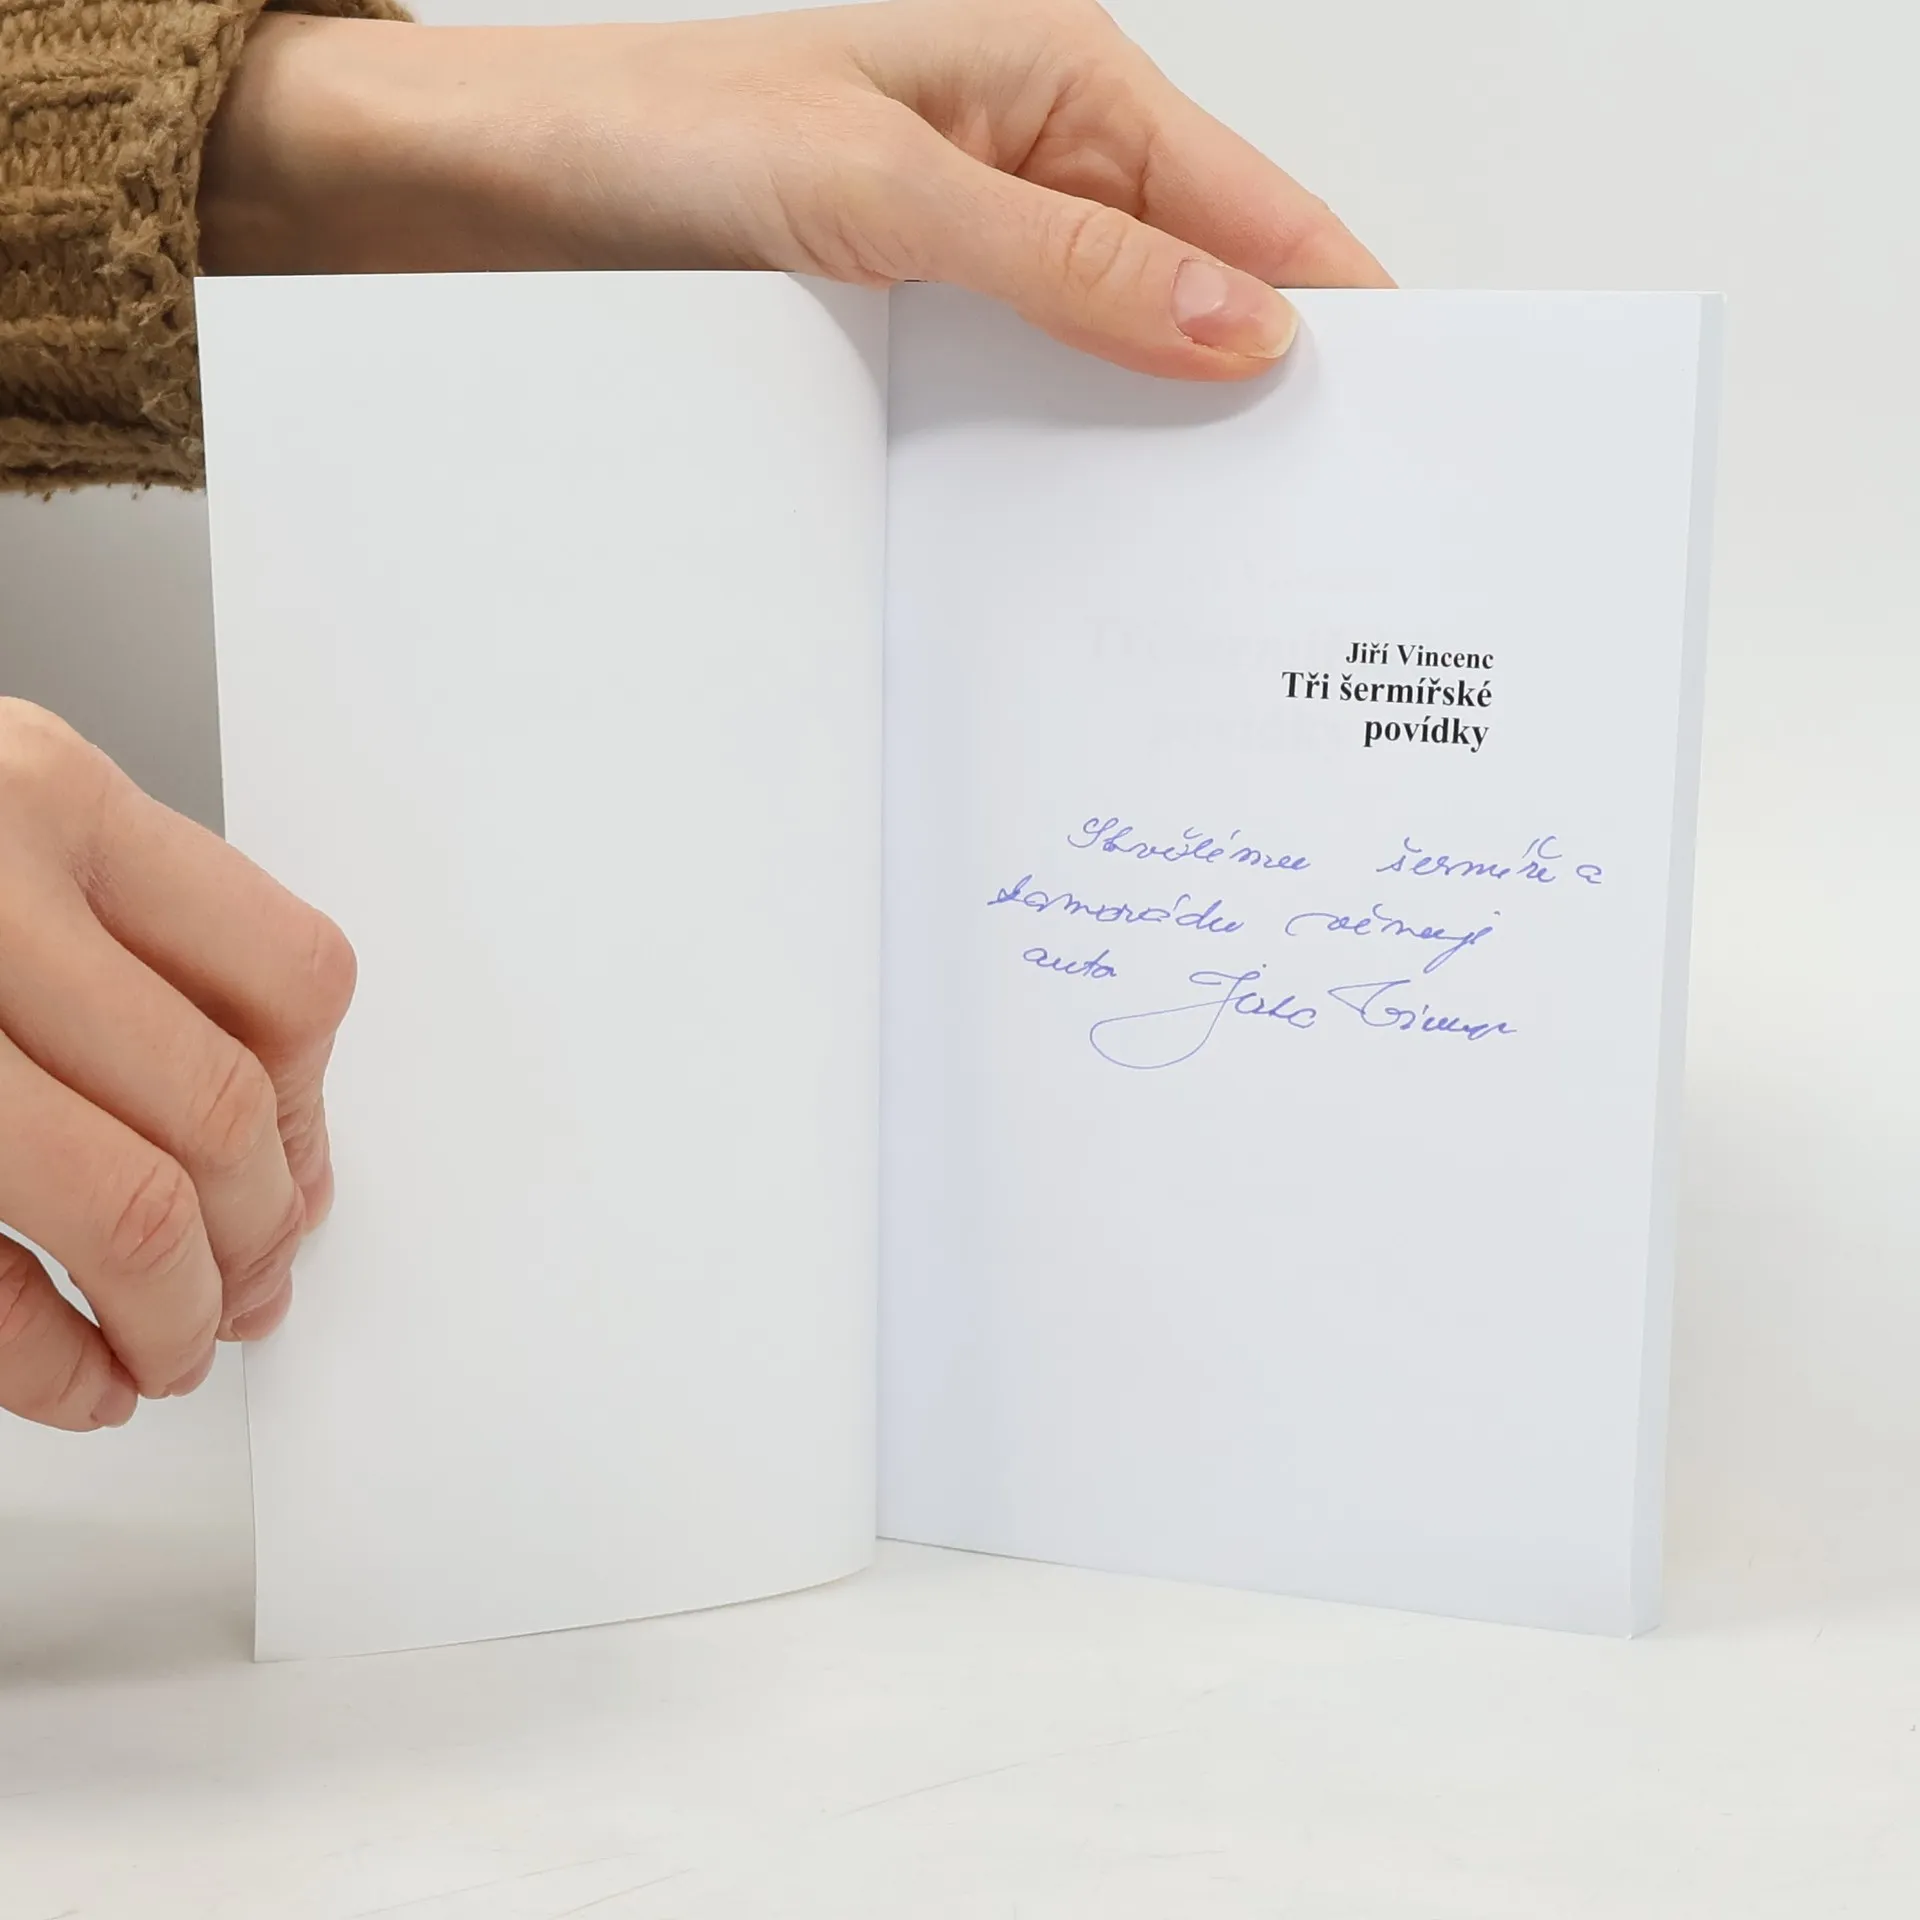 Jiří Vincenc
Tři šermířské
povídky
Skvělému šermíři a
kamarádu věnuje
auto